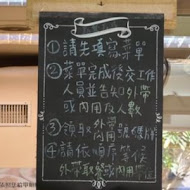 ①請先填寫菜單
②菜單完成後交工作
人員並告知外帶
或內用及人數
③領取外帶
內用號碼牌
④請依順序等候
外帶取餐或內用帶位